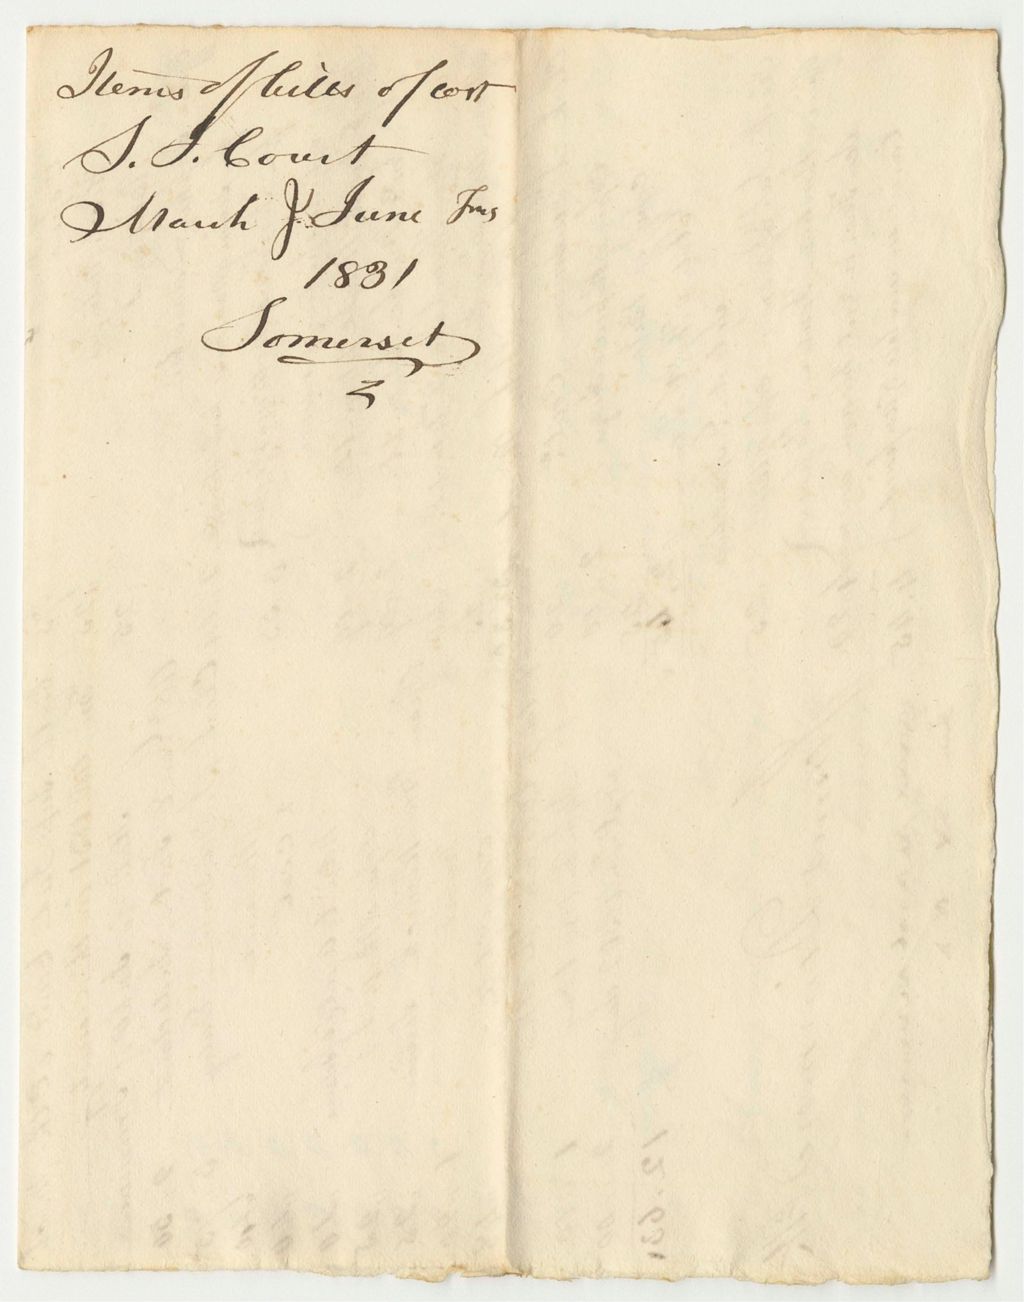 Items of bills of cost
S. J. Court
March & June Tms
1831
Somerset